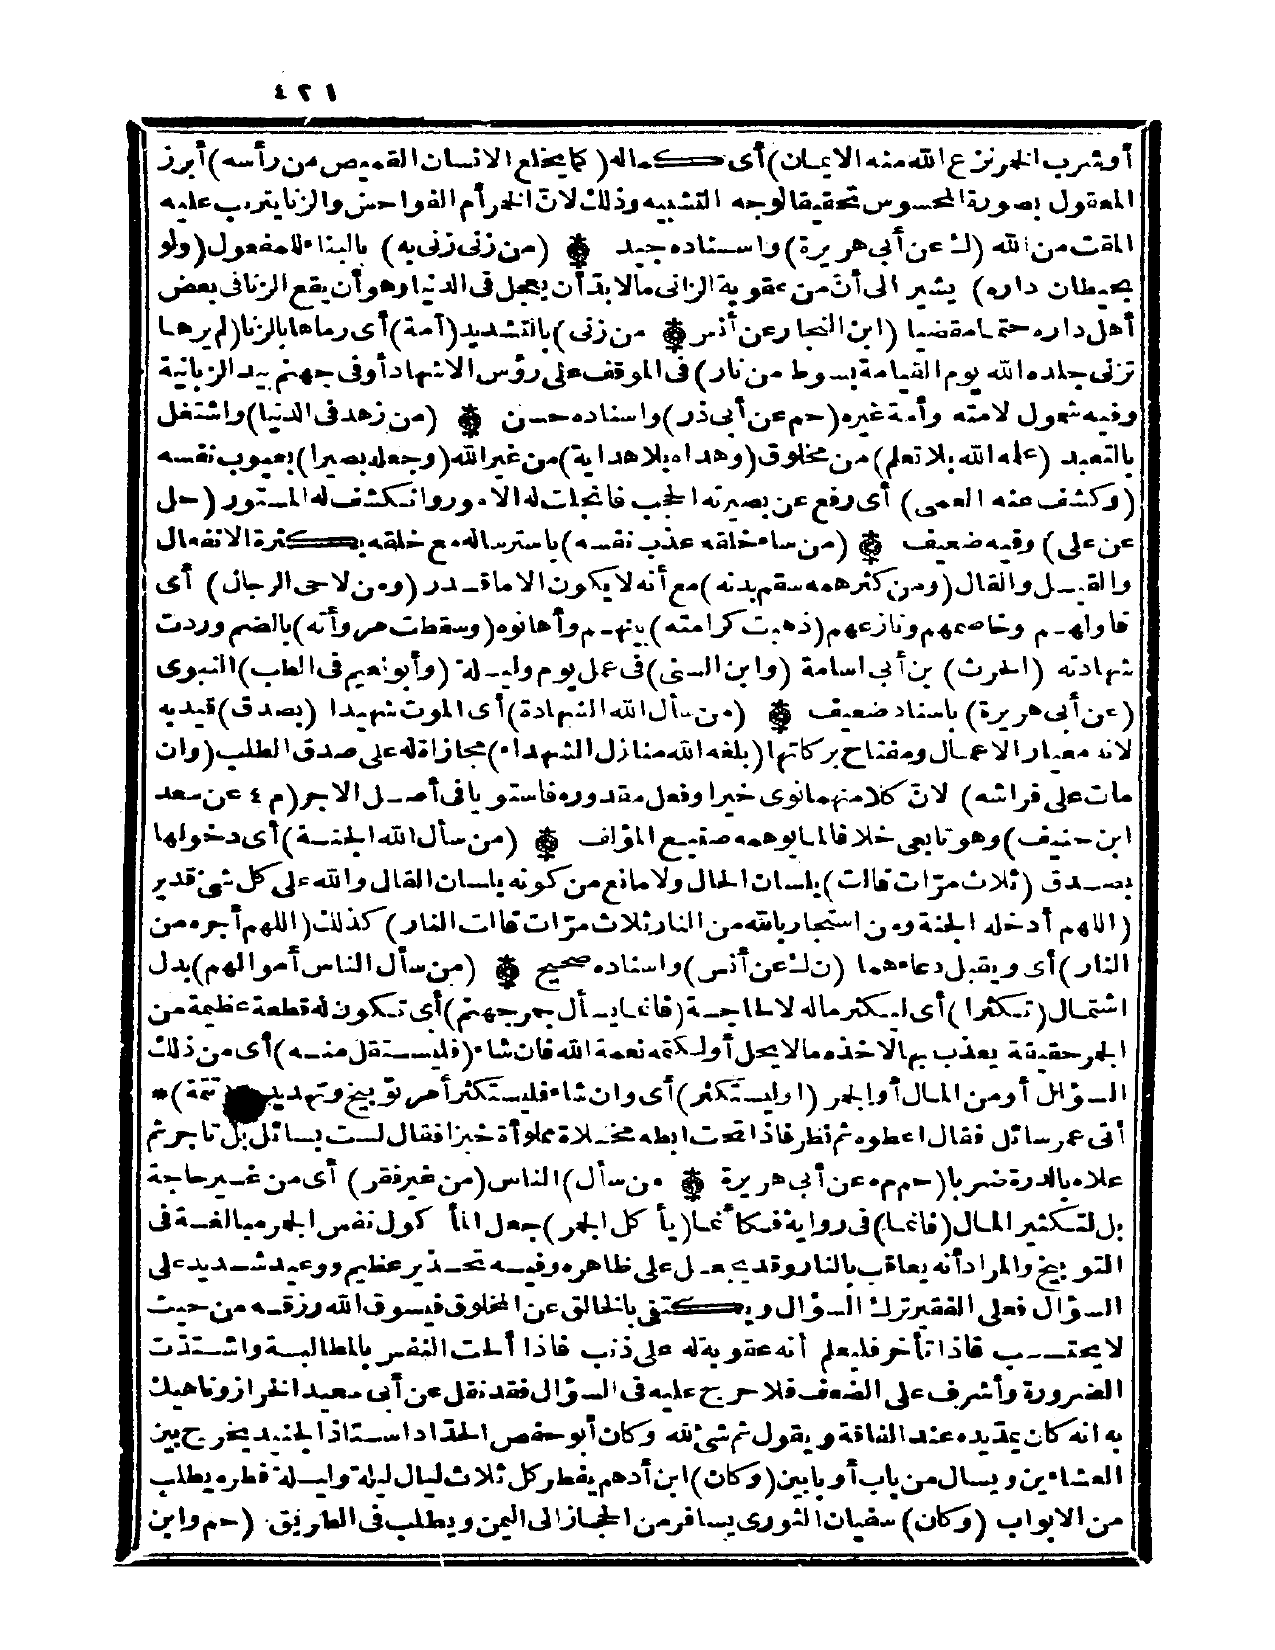 ٤٢١
أو شرب الخمر نزع الله منه الايمان) أى كماله (كما يخلع الانسان القميص من رأسه) أبرز
المعقول بصورة المحسوس تحقيقا لوجه التشبيه وذلك لانّ الخمر أم الفواحش والزنا يترتب عليه
المقت من الله (ك عن أبى هريرة) واسناده جيد ۞ (من زنى زنى به) بالبناء للمفعول (ولو
بحيطان داره) يشير الى أنّ من عقوبة الزانى ما لا بدّ أن يعجل فى الدنيا وهو أن يقع الزنا فى بعض
أهل داره حتما مقضيا (ابن النجار عن أنس ۞ من زنى) بالتشديد (أمة) أى رماها بالزنا (لم يرها
تزنى جلده الله يوم القيامة بسوط من نار) فى الموقف على رؤس الاشهاد أو فى جهنم بيد الزبانية
وفيه شمول لامته وأمة غيره (حم عن أبى ذر) واسناده حسن ۞ (من زهد فى الدنيا) واشتغل
بالتعبد (علمه الله بلا تعلم) من مخلوق (وهداه بلا هداية) من غير الله (وجعله بصيرا) بعيوب نفسه
(وكشف عنه العمى) أى رفع عن بصيرته الحجب فانجلت له الامور وانكشف له المستور (حل
عن على) وفيه ضعيف ۞ (من ساء خلقه عذب نفسه) باسترساله مع خلقه بكثرة الانفعال
والقيل والقال (ومن كثر همه سقم بدنه) مع أنه لا يكون الا ما قدر (ومن لاحى الرجال) أى
قاولهم وخاصمهم ونازعهم (ذهبت كرامته) بينهم وأهانوه (وسقطت مروأته) بالضم وردت
شهادته (الحرث) بن أبى اسامة (وابن السنى) فى عمل يوم وليلة (وأبو نعيم فى الطب) النبوى
(عن أبى هريرة) باسناد ضعيف ۞ (من سأل الله الشهادة) أى الموت شهيدا (بصدق) قيد به
لانه معيار الاعمال ومفتاح بركاتها (بلغه الله منازل الشهداء) مجازاة له على صدق الطلب (وان
مات على فراشه) لانّ كلا منهما نوى خيرا وفعل مقدوره فاستويا فى أصل الاجر (م ٤ عن سعد
ابن حنيف) وهو تابعى خلافا لما يوهمه صنيع المؤلف ۞ (من سأل الله الجنة) أى دخولها
بصدق (ثلاث مرّات قالت) بلسان الحال ولا مانع من كونه بلسان القال والله على كل شئ قدير
(اللهم أدخله الجنة ومن استجار بالله من النار ثلاث مرّات قالت النار) كذلك (اللهم أجره من
النار) أى ويقبل دعاءهما (ن ك عن أنس) واسناده صحيح ۞ (من سأل الناس أموالهم) بدل
اشتمال (تكثرا) أى ليكثر ماله لا لحاجة (فانما يسأل جمر جهنم) أى تكون له قطعة عظيمة من
الجمر حقيقة يعذب بها لاخذه ما لا يحل أو لكتمه نعمة الله فان شاء (فليستقل منه) أى من ذلك
السؤال أو من المال أو الجمر (او ليستكثر) أى وان شاء فليستكثر أمر توبيخ وتهديد (تتمة) *
أتى عمر سائل فقال اعطوه ثم نظر فاذا تحت ابطه مخلاة مملوأة خبزا فقال لست بسائل بل تاجر ثم
علاه بالدرة ضربا (حم م ه عن أبى هريرة ۞ من سأل) الناس (من غير فقر) أى من غير حاجة
بل لتكثير المال (فانما) فى رواية فكأنما (يأكل الجمر) جعل المأكول نفس الجمر مبالغة فى
التوبيخ والمراد أنه يعاقب بالنار وقد يجعل على ظاهره وفيه تحذير عظيم ووعيد شديد على
السؤال فعلى الفقير ترك السؤال ويكتفى بالخالق عن المخلوق فيسوق الله رزقه من حيث
لا يحتسب فاذا تأخر فليعلم أنه عقوبة له على ذنب فاذا ألحت النفس بالمطالبة واشتدت
الضرورة وأشرف على الضعف فلا حرج عليه فى السؤال فقد نقل عن أبى سعيد الخراز وناهيك
به انه كان يمد يده عند الفاقة ويقول ثم شئ لله وكان أبو حفص الحدّاد استاذ الجنيد يخرج بين
العشاءين ويسال من باب أو بابين (وكان) ابن أدهم يفطر كل ثلاث ليال ليلة وليلة فطره يطلب
من الابواب (وكان) سفيان الثورى يسافر من الحجاز الى اليمن ويطلب فى الطريق (حم وابن